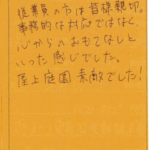 従業員の方は皆様親切。
事務的な対応ではなく、
心からのおもてなしと
いった感じでした。
屋上庭園素敵でした!